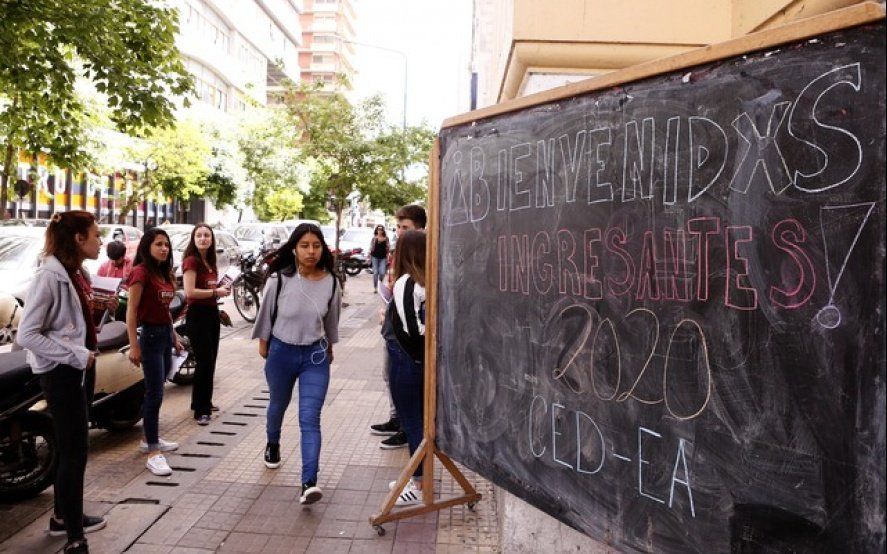 ¡BIENVENIDXS
INGRESANTES!
2020
CED-EA